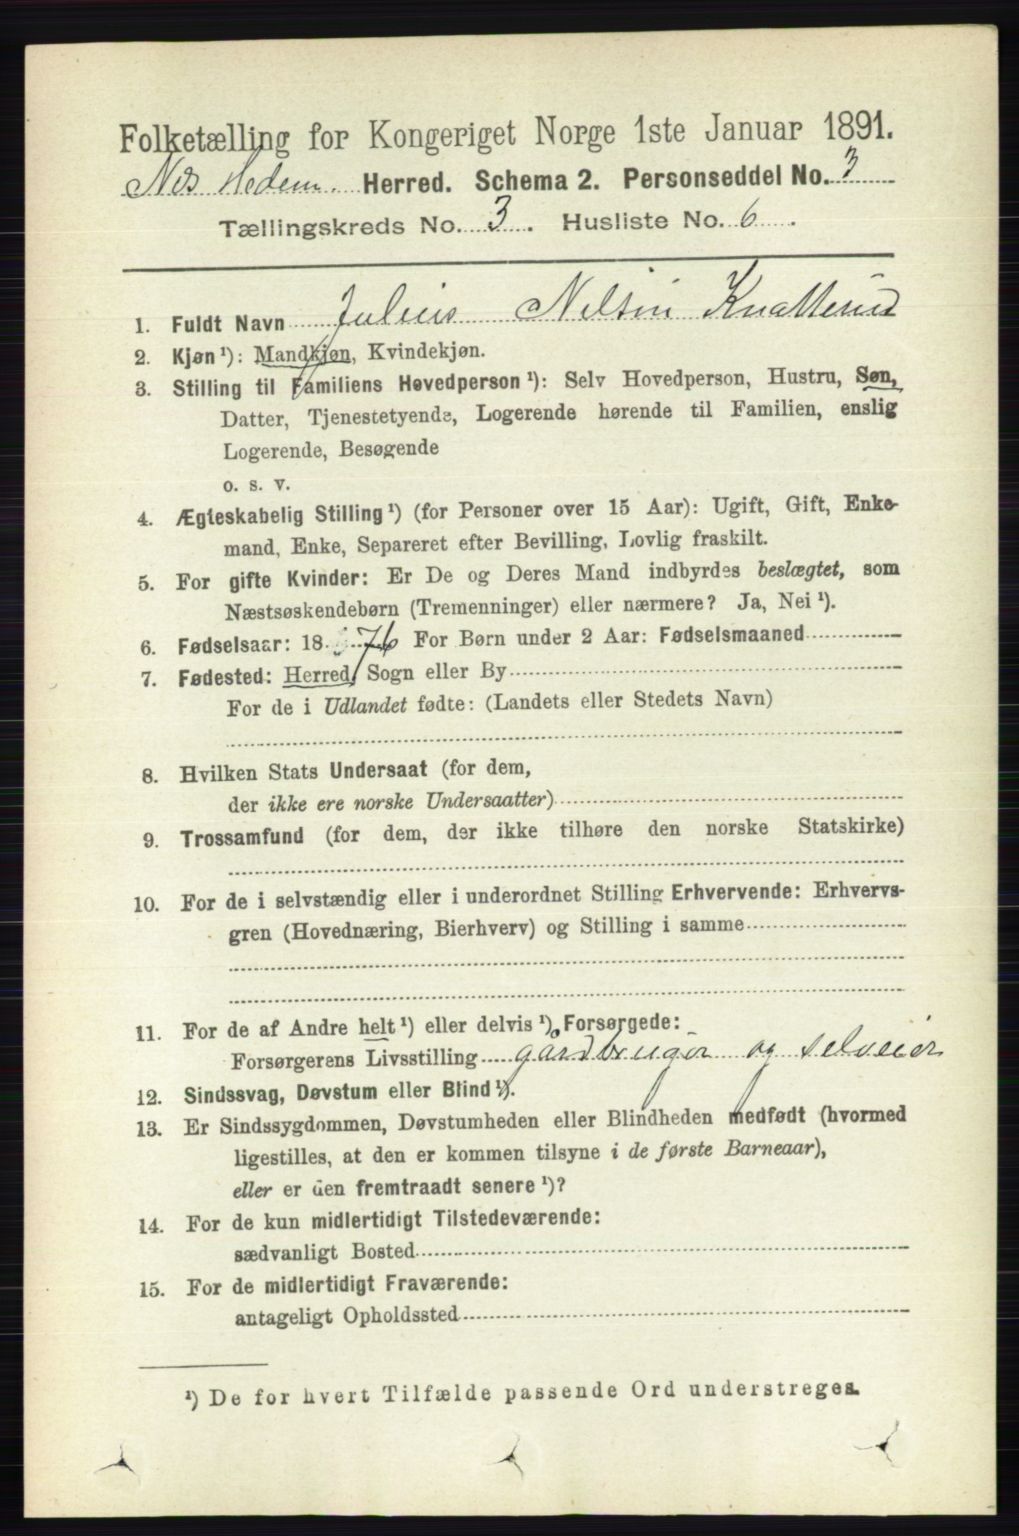 Folketælling for Kongeriget Norge 1ste Januar 1891.
Nes Hedem. Herred. Schema 2. Personseddel No. 3
Tællingskreds No. 3. Husliste No. 6.
1. Fuldt Navn Julius Nilsen Knatterud
2. Kjøn ¹): Mandkjøn, Kvindekjøn.
3. Stilling til Familiens Hovedperson ¹): Selv Hovedperson, Hustru, Søn,
Datter, Tjenestetyende, Logerende hørende til Familien, enslig
Logerende, Besøgende
o. s. v.
4. Ægteskabelig Stilling ¹) (for Personer over 15 Aar): Ugift, Gift, Enke-
mand, Enke, Separeret efter Bevilling, Lovlig fraskilt.
5. For gifte Kvinder: Er De og Deres Mand indbyrdes beslægtet, som
Næstsøskendebørn (Tremenninger) eller nærmere? Ja, Nei ¹).
6. Fødselsaar: 1876 For Børn under 2 Aar: Fødselsmaaned
7. Fødested: Herred, Sogn eller By
For de i Udlandet fødte: (Landets eller Stedets Navn)
8. Hvilken Stats Undersaat (for dem,
der ikke ere norske Undersaatter)
9. Trossamfund (for dem, der ikke tilhøre den norske Statskirke)
10. For de i selvstændig eller i underordnet Stilling Erhvervende: Erhvervs-
gren (Hovednæring, Bierhverv) og Stilling i samme
11. For de af Andre helt ¹) eller delvis ¹) Forsørgede:
Forsørgerens Livsstilling gårdbruger og selveier
12. Sindssvag, Døvstum eller Blind ¹).
13. Er Sindssygdommen, Døvstumheden eller Blindheden medfødt (hvormed
ligestilles, at den er kommen tilsyne i de første Barneaar),
eller er den fremtraadt senere ¹)?
14. For de kun midlertidigt Tilstedeværende:
sædvanligt Bosted
15. For de midlertidigt Fraværende:
antageligt Opholdssted
¹) De for hvert Tilfælde passende Ord understreges.